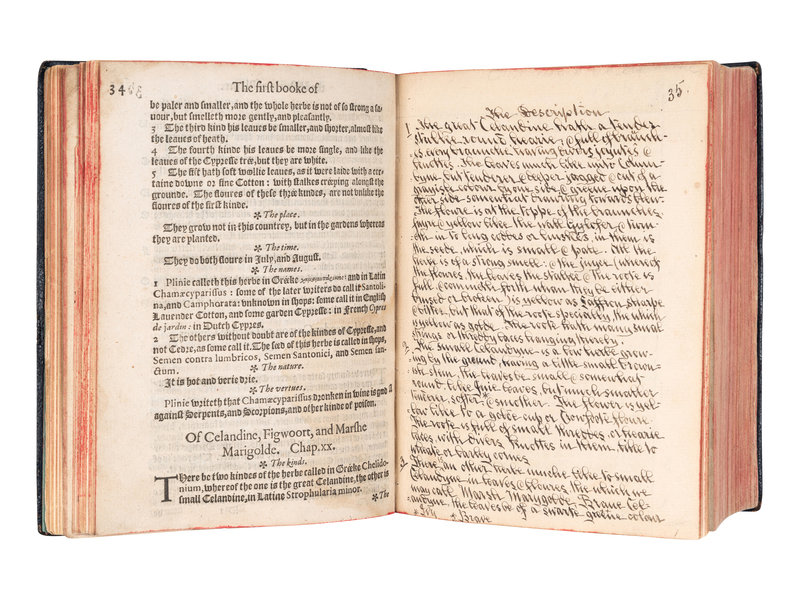 34
The first booke of
be paler and smaller, and the whole herbe is not of so strong a sa-
uour, but smelleth more gently, and pleasantly.
3 The third kind his leaues be smaller, and shorter, almost like
the leaues of heath.
4 The fourth kinde his leaues be more single, and like the
leaues of the Cypresse tree, but they are white.
5 The fift hath soft wollie leaues, as it were laide with a cer-
taine downe or fine Cotton: with stalkes creeping alongst the
grounde. The floures of these three kindes, are not vnlike the
floures of the first kinde.
❧ The place.
They grow not in this countrey, but in the gardens whereas
they are planted.
❧ The time.
They do both floure in July, and August.
❧ The names.
1 Plinie calleth this herbe in Greeke and in Latin
Chamæcyparissus: some of the later writers do call it Santoli-
na, and Camphorata: vnknown in shops: some call it in English
Lauender Cotton, and some garden Cypresse: in French Cypres
de jardin: in Dutch Cypres.
2 The others without doubt are of the kindes of Cypresse, and
not Cedre, as some call it. The seed of this herbe is called in shops,
Semen contra lumbricos, Semen Santonici, and Semen san-
ctum.
❧ The nature.
It is hot and verie drie.
❧ The vertues.
Plinie writeth that Chamæcyparissus dronken in wine is good
against Serpents, and Scorpions, and other kinde of poison.
Of Celandine, Figwoort, and Marshe
Marigolde. Chap.xx.
❧ The kinds.
There be two kindes of the herbe called in Greeke Chelido-
nium, whereof the one is the great Celandine, the other is
small Celandine, in Latine Strophularia minor.
❧ The
35
The Description
1 The great Celandine hath a tender
stalke, round, hearie, & full of braunches
euery braunch having divers ioyntes &
knottes. The leaves much like unto Colum-
byne, but tenderer & deeper jagged or cut of a
grayishe colour by one side & greene upon the
other side somewhat drawing towards blew.
The floure is at the toppe of the braunches,
fayre & yellow like the wall gylofer & turn-
eth in to long coddes or huskes, in them is
the seede, which is small & pale. All the
herb is of a strong smell: & the juyce (whereof
the floures, the leaves, the stalke & the roote is
full) commeth forth when they be either
brused or broken, is yellow as Saffron, sharpe
& bitter, but that of the roote specially, the which
is yellow as golde. The roote hath many small
strings or threedy laces hanging thereby.
2 The small Celandyne is a low herbe grow-
ing by the ground, having a little small brown-
ish stem, the leaves be small & somewhat
round like Ivie leaves, but much smaller
tenderer, softer & smoother. The flower is yel-
low like to a golde cup or Crowfoote floure.
The roote is full of small threedes or hearie
laces, with divers knottes in them like to
wheate or barley cornes.
3 There is an other herbe muche like to small
Celandyne in leaves & floures, the which we
may call Marsh Marygolde, Brave Cel-
andyne, the leaves be of a swarte greene colour
* Ivy * Brave